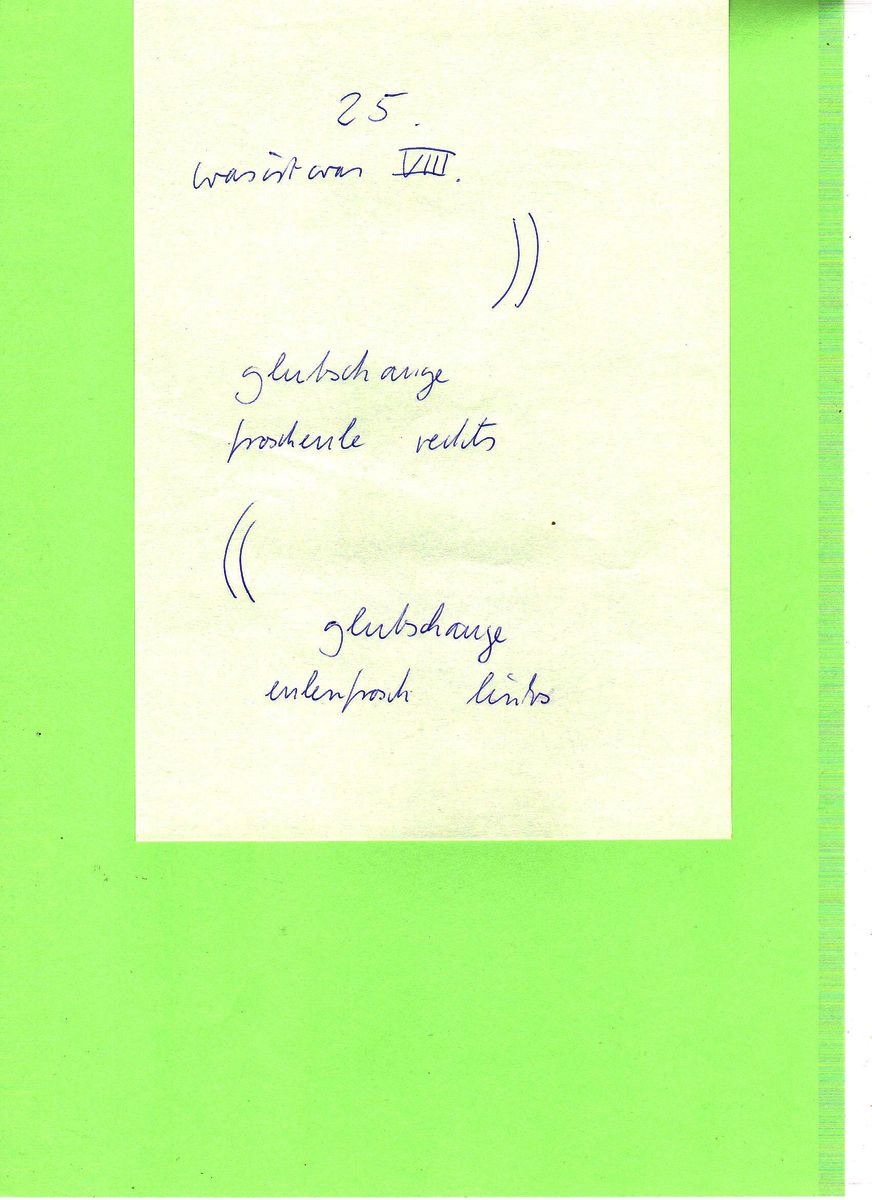 25.
wasistwas VIII.
))
glubschauge
froscheule rechts
((
glubschauge
eulenfrosch links